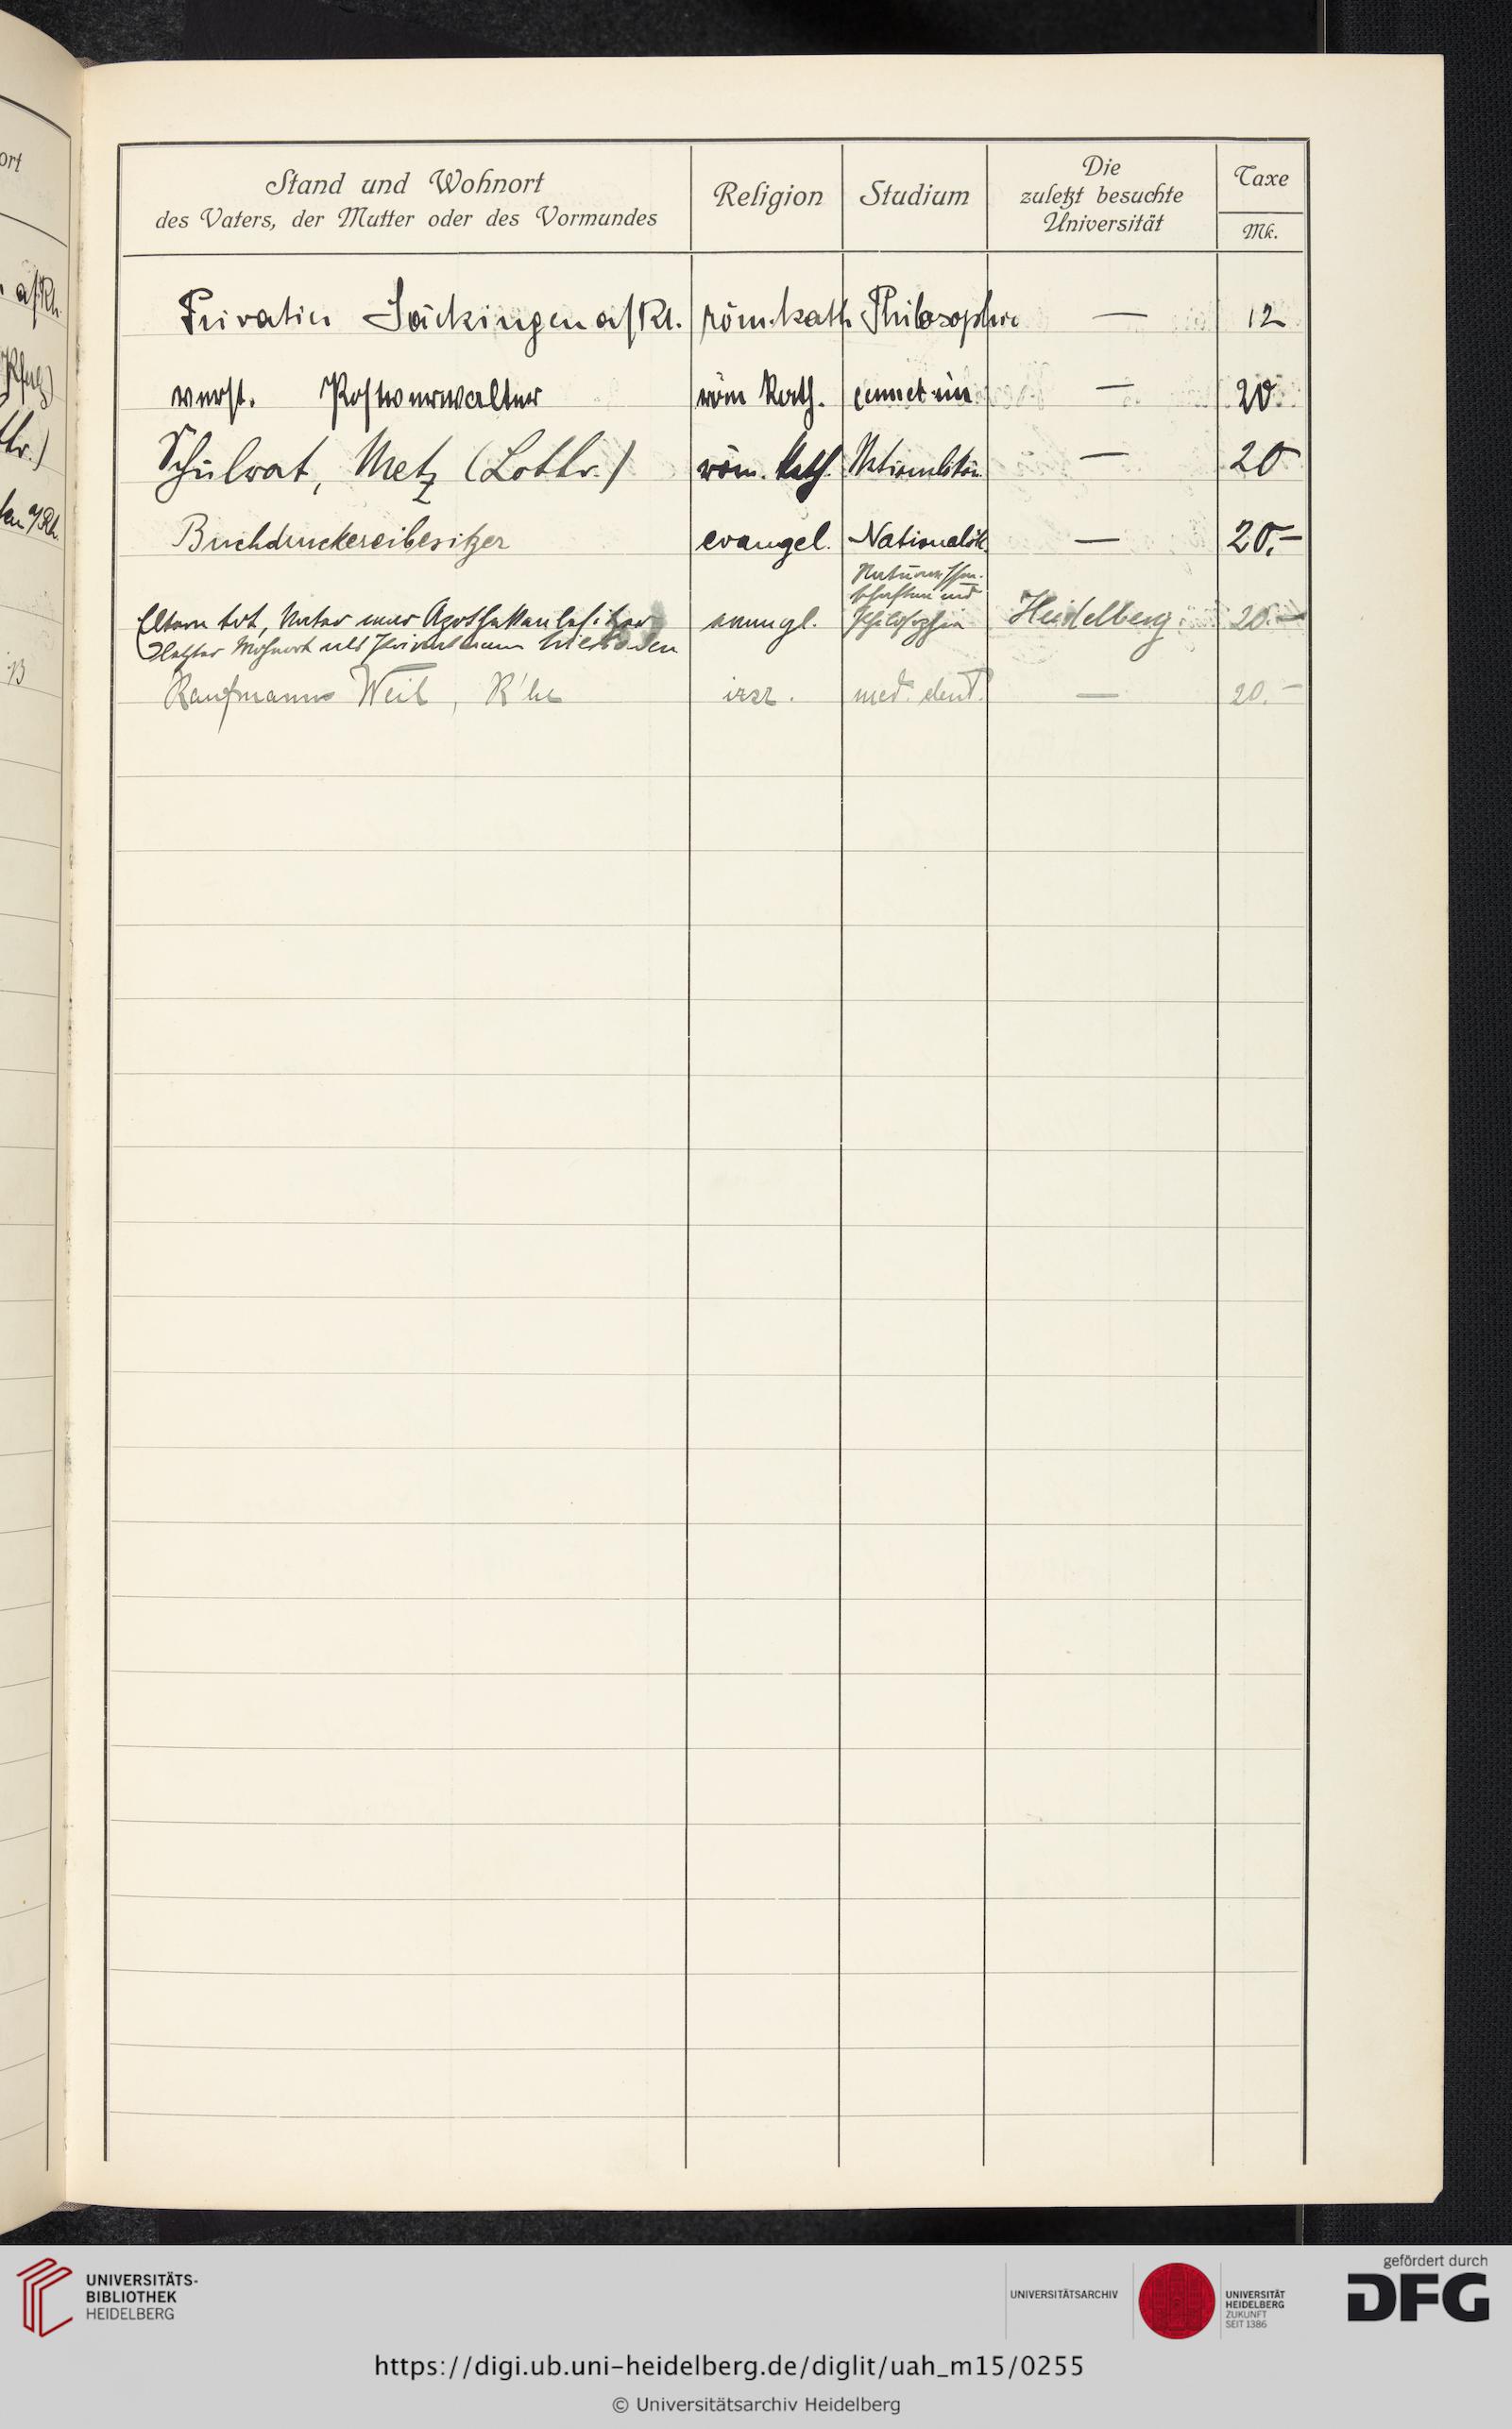 ort
Stand und Wohnort
des Vaters, der Mutter oder des Vormundes
Religion
Studium
Die
zuletzt besuchte
Universität
Taxe
Mk.
a/Rh.
Privatier Säckingen a/Rh. röm. kath. Philosophie — 12
verst. Postverwalter röm Kath. — 20
Schulrat, Metz (Lothr.) röm. kath. Nationalökon. — 20
Buchdruckereibesitzer evangel. Nationalök. — 20.-
Naturwissen-
schaften und
Eltern tot, Vater war Apothekenbesitzer evangl. Philosophie Heidelberg. 20.-
letzter Wohnort als Privatmann Wiesbaden
Kaufmann Weil, K'he isr. med. dent. — 20.-
UNIVERSITÄTS-
BIBLIOTHEK
HEIDELBERG
UNIVERSITÄTSARCHIV
UNIVERSITÄT
HEIDELBERG
ZUKUNFT
SEIT 1386
gefördert durch
DFG
https://digi.ub.uni-heidelberg.de/diglit/uah_m15/0255
© Universitätsarchiv Heidelberg